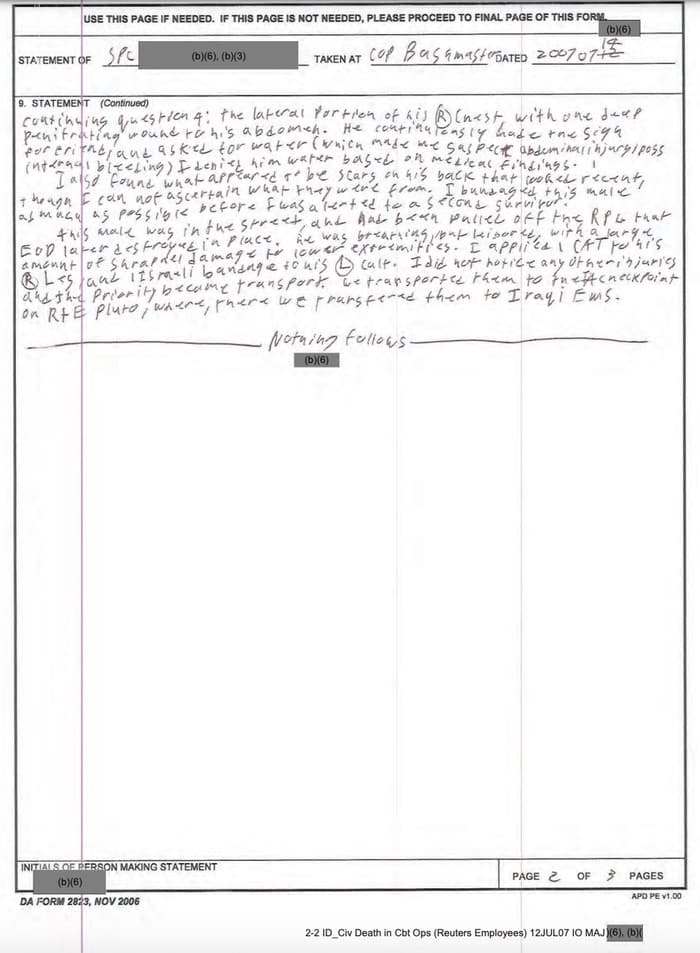 USE THIS PAGE IF NEEDED. IF THIS PAGE IS NOT NEEDED, PLEASE PROCEED TO FINAL PAGE OF THIS FORM.
(b)(6)
STATEMENT OF SPC (b)(6), (b)(3) TAKEN AT COP Bushmaster DATED 200707
9. STATEMENT (Continued)
continuing question 4: the lateral portion of his (R) Chest, with one deep
penitrating wound to his abdomen. He continuously made the sign
for friend, and asked for water (which made me suspect abdominal injury/poss
internal bleeding) I denied him water based on medical findings.
I also found what appeared to be scars on his back that looked recent,
though I can not ascertain what they were from. I bandaged this male
as much as possible before I was alerted to a second survivor.
this male was in the street, and had been pulled off the RPG that
EOD later destroyed in place. he was breathing, but labored, with a large
amount of shrapnel damage to lower extremities. I applied 1 CAT to his
(R) Leg, and 1 Israeli bandage to his (L) calf. I did not notice any other injuries
and the priority became transport. we transported them to the checkpoint
on RtE Pluto, where, there we transfered them to Iraqi Ems.
Nothing Follows
(b)(6)
INITIALS OF PERSON MAKING STATEMENT
(b)(6)
PAGE 2 OF 3 PAGES
DA FORM 2823, NOV 2006
APD PE v1.00
2-2 ID_Civ Death in Cbt Ops (Reuters Employees) 12JUL07 IO MAJ (6), (b)(